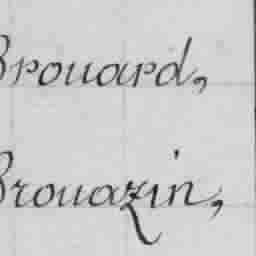 Brouard,
Brouazin,